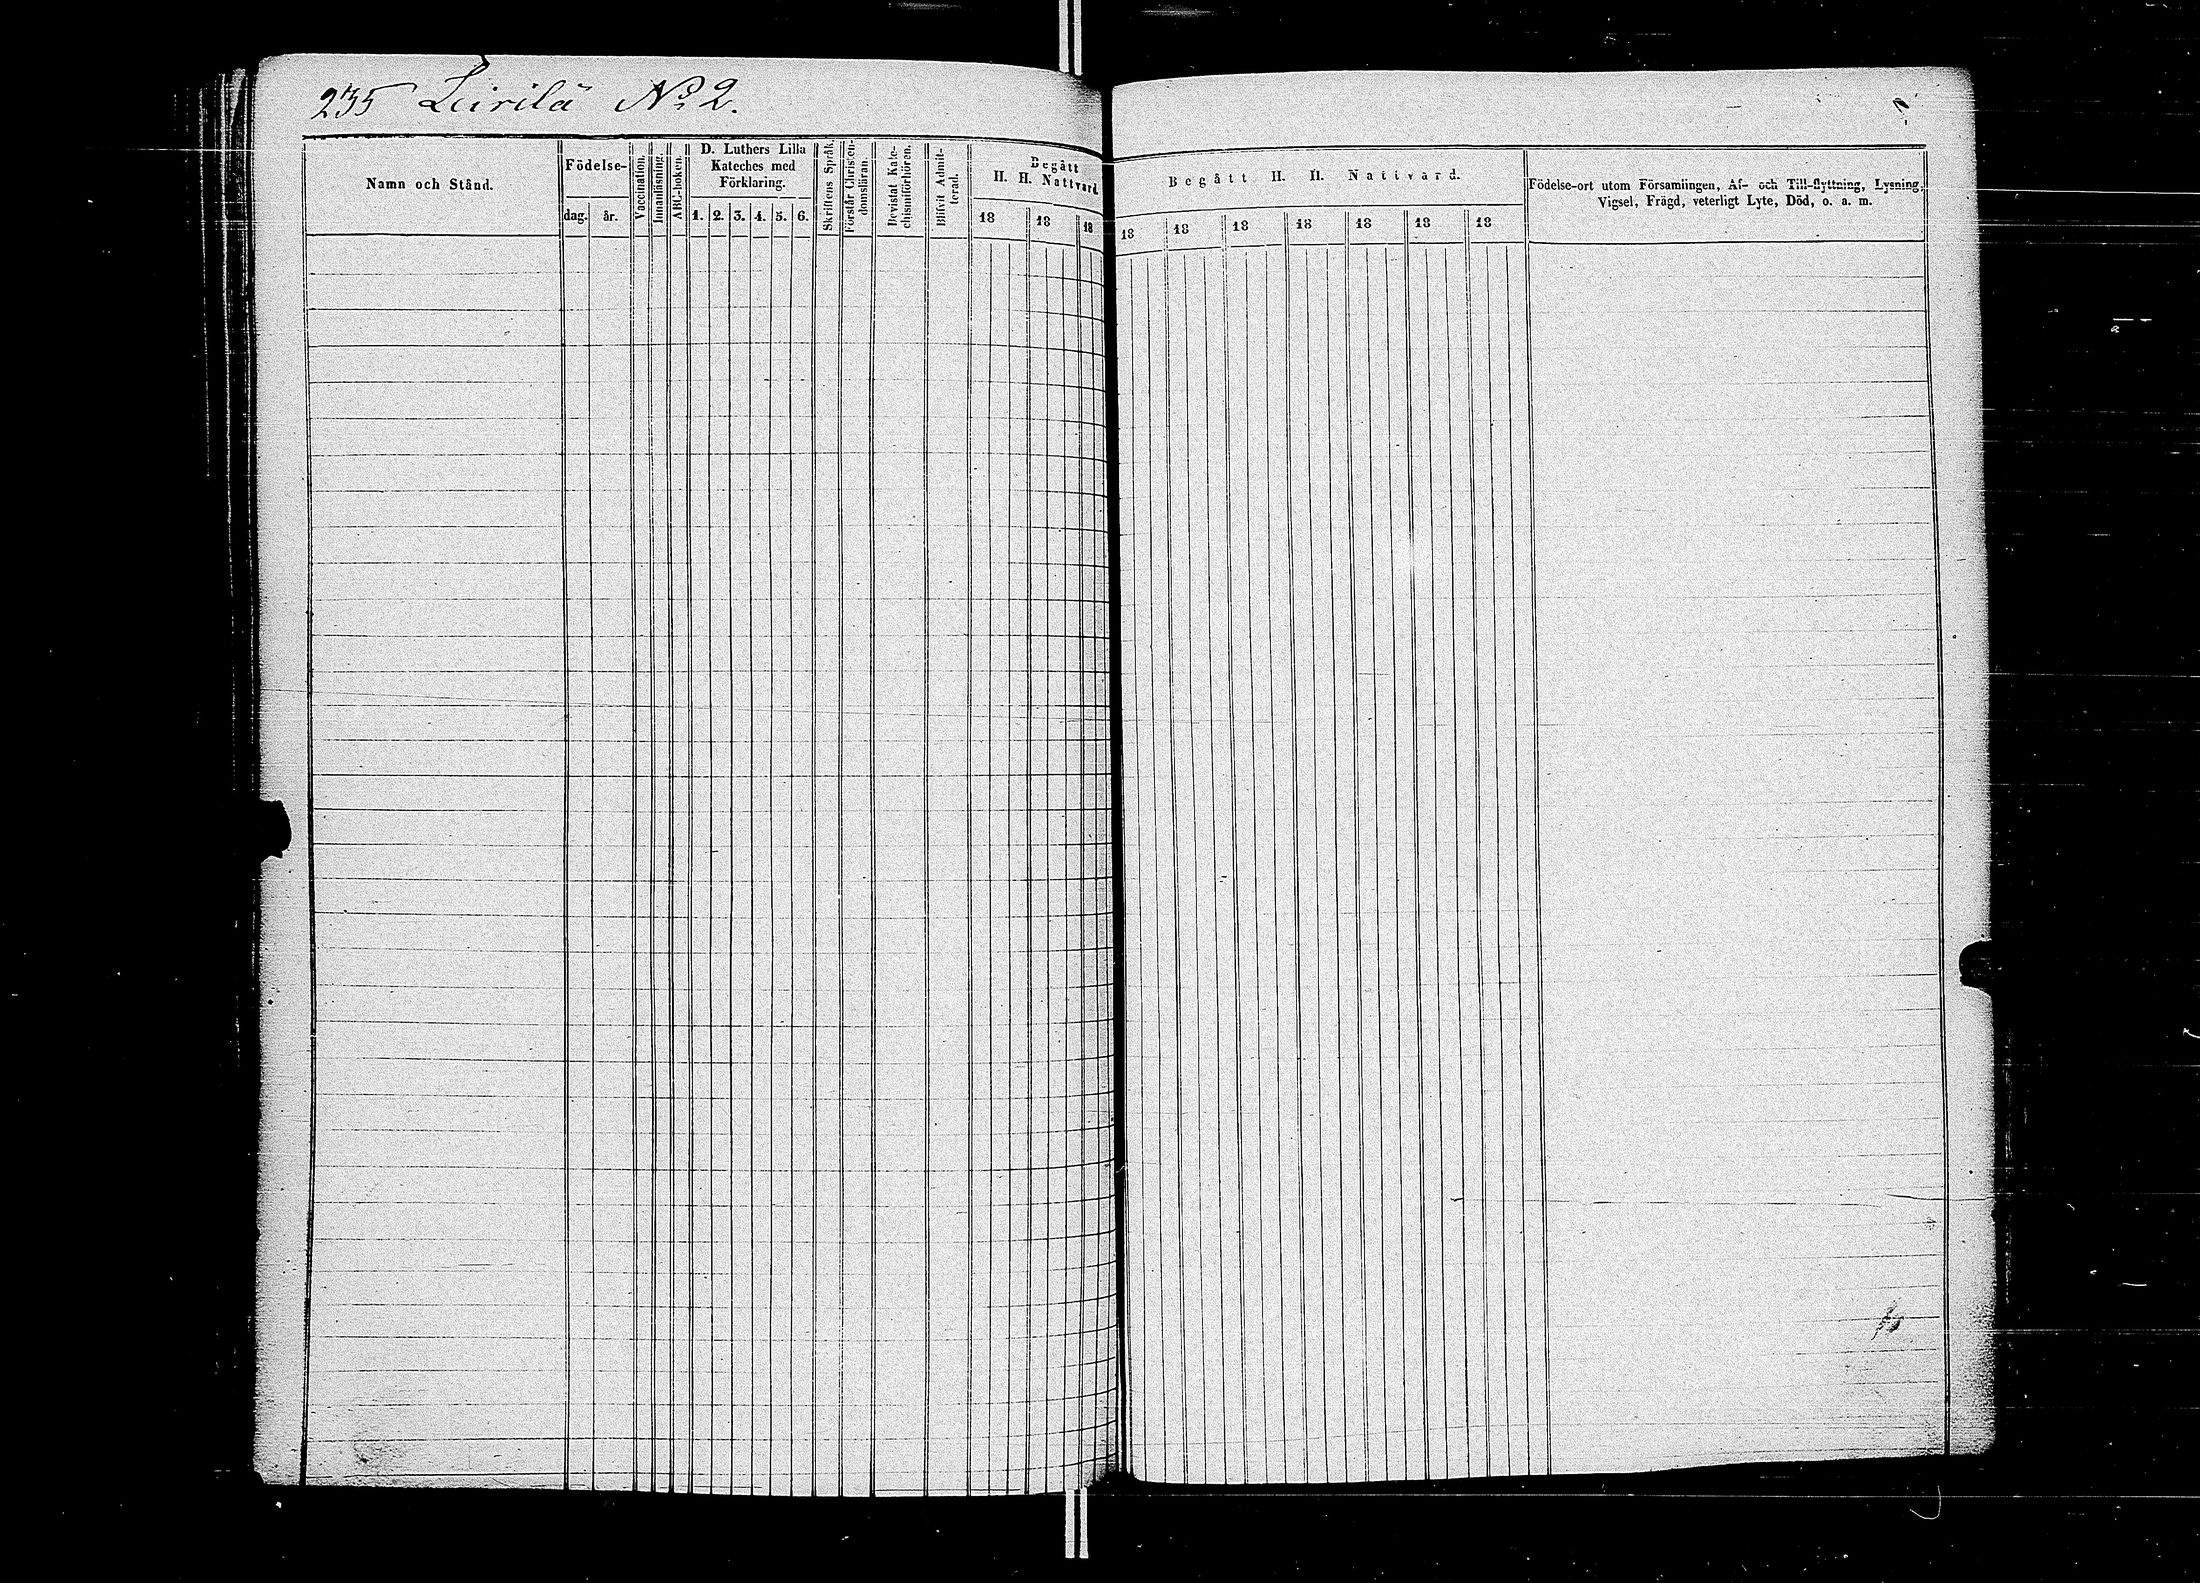 235 Leirilä No 2.
Namn och Stånd.
Födelse-
dag. år.
Vaccination.
Innanläsning.
ABC-boken.
D. Luthers Lilla
Kateches med
Förklaring.
1. 2. 3. 4. 5. 6.
Skriftens Språk.
Förstår Christen-
domsläran.
Bevistat Kate-
chismiförhören.
Blifvit Admit-
terad.
Begått
H. H. Nattvard.
18 18 18
Begått H. H. Nattvard.
18 18 18 18 18 18 18
Födelse-ort utom Församlingen, Af- och Till-flyttning, Lysning,
Vigsel, Frägd, veterligt Lyte, Död, o. a. m.